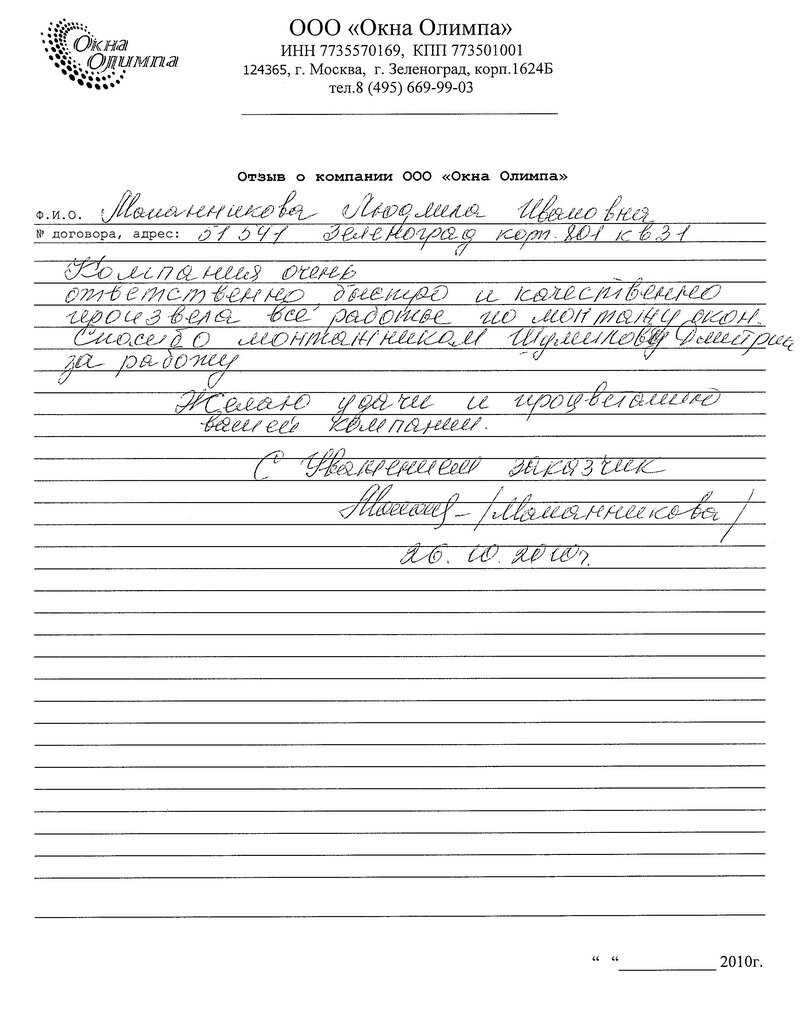 Окна
Олимпа
ООО «Окна Олимпа»
ИНН 7735570169, КПП 773501001
124365, г. Москва, г. Зеленоград, корп.1624Б
тел.8 (495) 669-99-03
Отзыв о компании ООО «Окна Олимпа»
Ф.И.О. Маманникова Людмила Ивановна
№ договора, адрес: 51541 Зеленоград корп. 801 кв 31
Компания очень
ответственно, быстро и качественно
произвела все работы по монтажу окон.
Спасибо монтажникам Дмитрию
за работу
Желаю удачи и процветанию
вашей компании.
С Уважением заказчик
/Маманникова/
26.10.2010г.
“ “ 2010г.